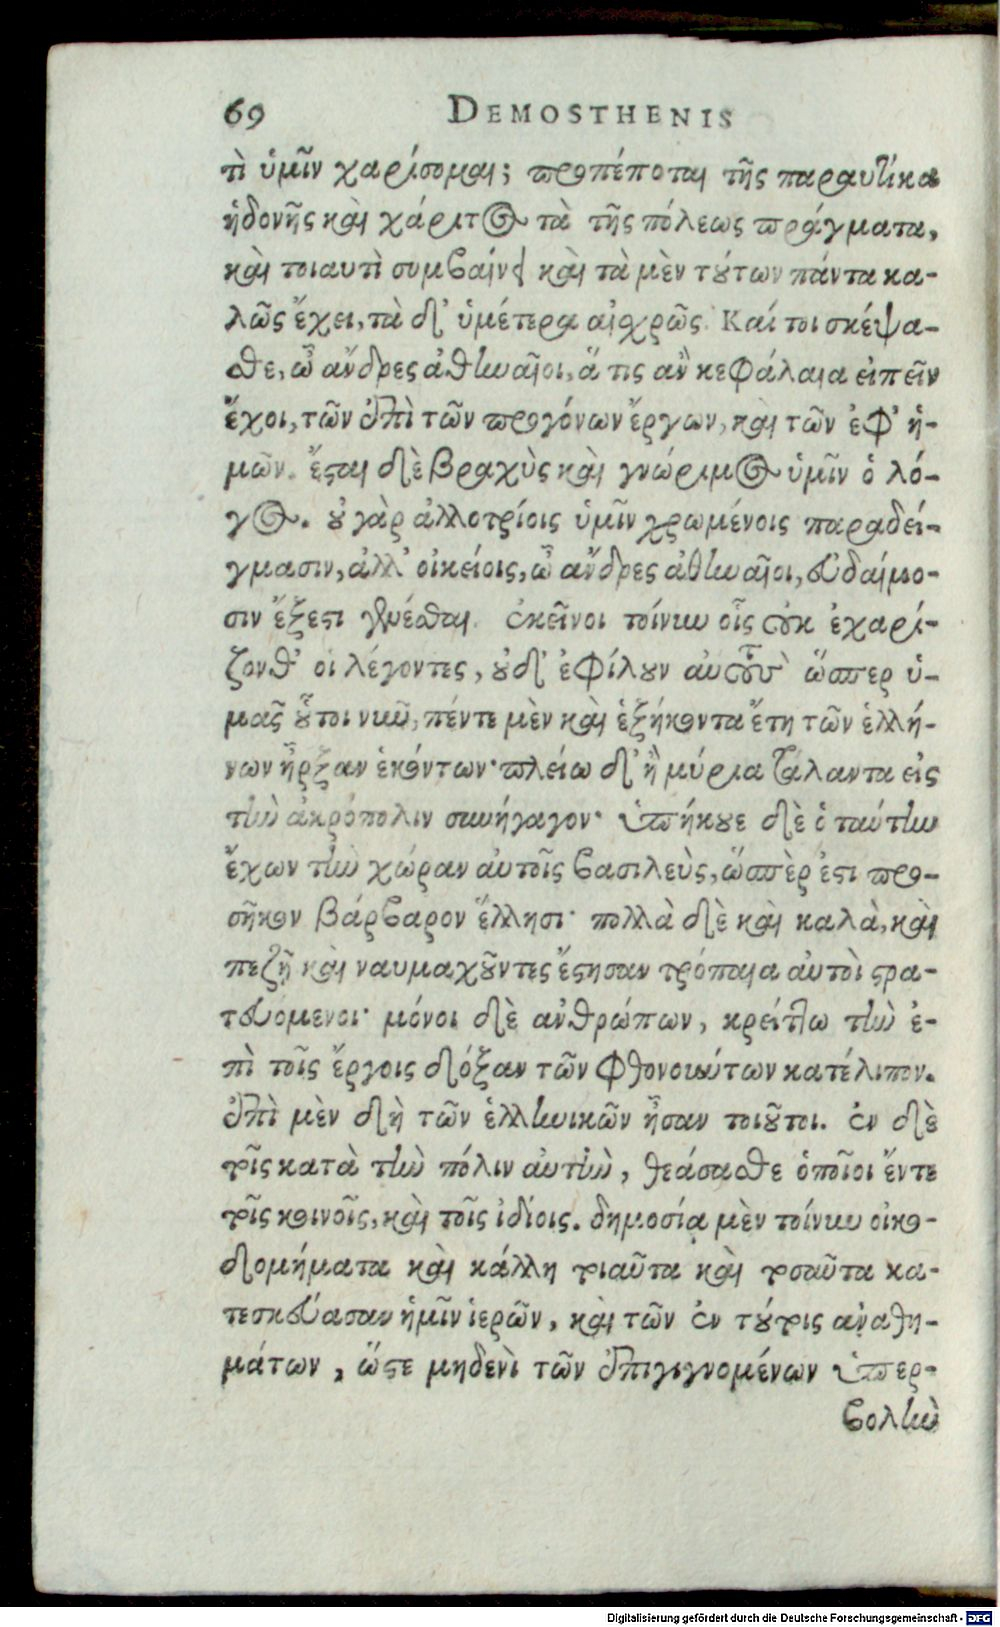 69 DEMOSTHENIS
τὶ ὑμῖν χαρίσομαι; προπέποται τῆς παραυτίκα
ἡδονῆς καὶ χάριτος τὰ τῆς πόλεως πράγματα,
καὶ τοιαυτὶ συμβαίνει καὶ τὰ μὲν τούτων πάντα κα-
λῶς ἔχει, τὰ δ' ὑμέτερα αἰσχρῶς. Καί τοι σκέψα-
σθε, ὦ ἄνδρες ἀθηναῖοι, ἅ τις ἂν κεφάλαια εἰπεῖν
ἔχοι, τῶν ἐπὶ τῶν προγόνων ἔργων, καὶ τῶν ἐφ' ἡ-
μῶν. ἔσται δὲ βραχὺς καὶ γνώριμος ὑμῖν ὁ λό-
γος. οὐ γὰρ ἀλλοτρίοις ὑμῖν χρωμένοις παραδεί-
γμασιν, ἀλλ' οἰκείοις, ὦ ἄνδρες ἀθηναῖοι, εὐδαίμο-
σιν ἔξεστι γενέσθαι. ἐκεῖνοι τοίνυν οἷς οὐκ ἐχαρί-
ζονθ' οἱ λέγοντες, οὐδ' ἐφίλουν αὐτοὺς ὥσπερ ὑ-
μᾶς οὗτοι νῦν, πέντε μὲν καὶ ἑξήκοντα ἔτη τῶν ἑλλή-
νων ἦρξαν ἑκόντων· πλείω δ' ἢ μύρια τάλαντα εἰς
τὴν ἀκρόπολιν συνήγαγον· ὑπήκουε δὲ ὁ ταύτην
ἔχων τὴν χώραν αὐτοῖς βασιλεὺς, ὥσπερ ἐστι προ-
σῆκον βάρβαρον ἕλλησι· πολλὰ δὲ καὶ καλὰ, καὶ
πεζῇ καὶ ναυμαχοῦντες ἔστησαν τρόπαια αὐτοὶ στρα-
τευόμενοι· μόνοι δὲ ἀνθρώπων, κρείττω τὴν ἐ-
πὶ τοῖς ἔργοις δόξαν τῶν φθονούντων κατέλιπον.
ἐπὶ μὲν δὴ τῶν ἑλληνικῶν ἦσαν τοιοῦτοι. ἐν δὲ
τοῖς κατὰ τὴν πόλιν αὐτὴν, θεάσασθε ὁποῖοι ἔν τε
τοῖς κοινοῖς, καὶ τοῖς ἰδίοις. δημοσίᾳ μὲν τοίνυν οἰκο-
δομήματα καὶ κάλλη τοιαῦτα καὶ τοσαῦτα κα-
τεσκεύασαν ἡμῖν ἱερῶν, καὶ τῶν ἐν τούτοις ἀναθη-
μάτων, ὥστε μηδενὶ τῶν ἐπιγιγνομένων ὑπερ-
βολὴν
Digitalisierung gefördert durch die Deutsche Forschungsgemeinschaft - DFG